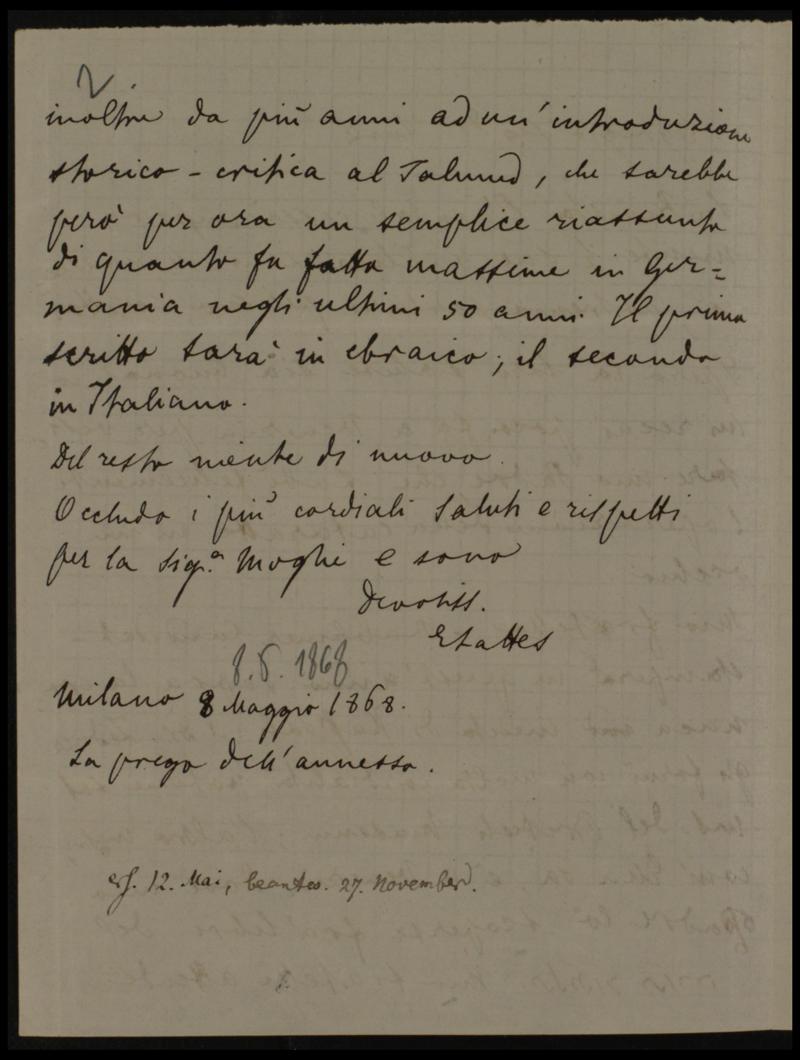 2
inoltre da più anni ad un' introduzione
storico - critica al Talmud, che sarebbe
però per ora un semplice riassunto
di quanto fu fatto massime in Ger=
mania negli ultimi 50 anni. Il primo
scritto sarà in ebraico; il secondo
in Italiano.
Del resto niente di nuovo.
Occludo i più cordiali saluti e rispetti
per la Sig.a Moglie e sono
Devotiss.
Lattes
8.5.1868
Milano 8 Maggio 1868.
La prego dell' annesso.
erh. 12. Mai, beantw. 27. November.